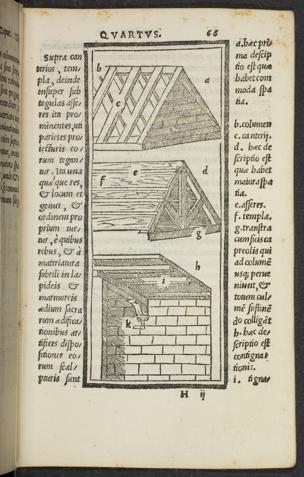 QVARTVS. 66
Supra can
terios, tem,
pla, deinde
insuper sub
tegulas asse,
res ita pro
minentes, uti
parietes pro
iecturis eo,
rum tegan,
tur. ita una
quæque res,
& locum et
genus, &
ordinem pro
prium tue,
tur, è quibus
rebus, & à
materiatura
fabrili in la,
pideis &
marmoreis
ædium sacra
rum ædifica,
tionibus ar,
tifices dispo,
sitiones eo,
rum scal,
pturis sunt
b
a
c
e
d
f
g
h
i
k
a. hæc pri,
ma descrip
tio est quæ
habet com
moda spa
tia.
b. columen
c. canterij.
d. hæc de
scriptio est
quæ habet
maiora spa
tia.
e. asseres.
f. templa.
g. transtra
cum suis ca
preolis qui
ad columē
usq; perue
niunt, &
totum cul,
mē sustinē
do colligāt
h. hæc de,
scriptio est
contigna,
tioni.
i. tigna,
H ij